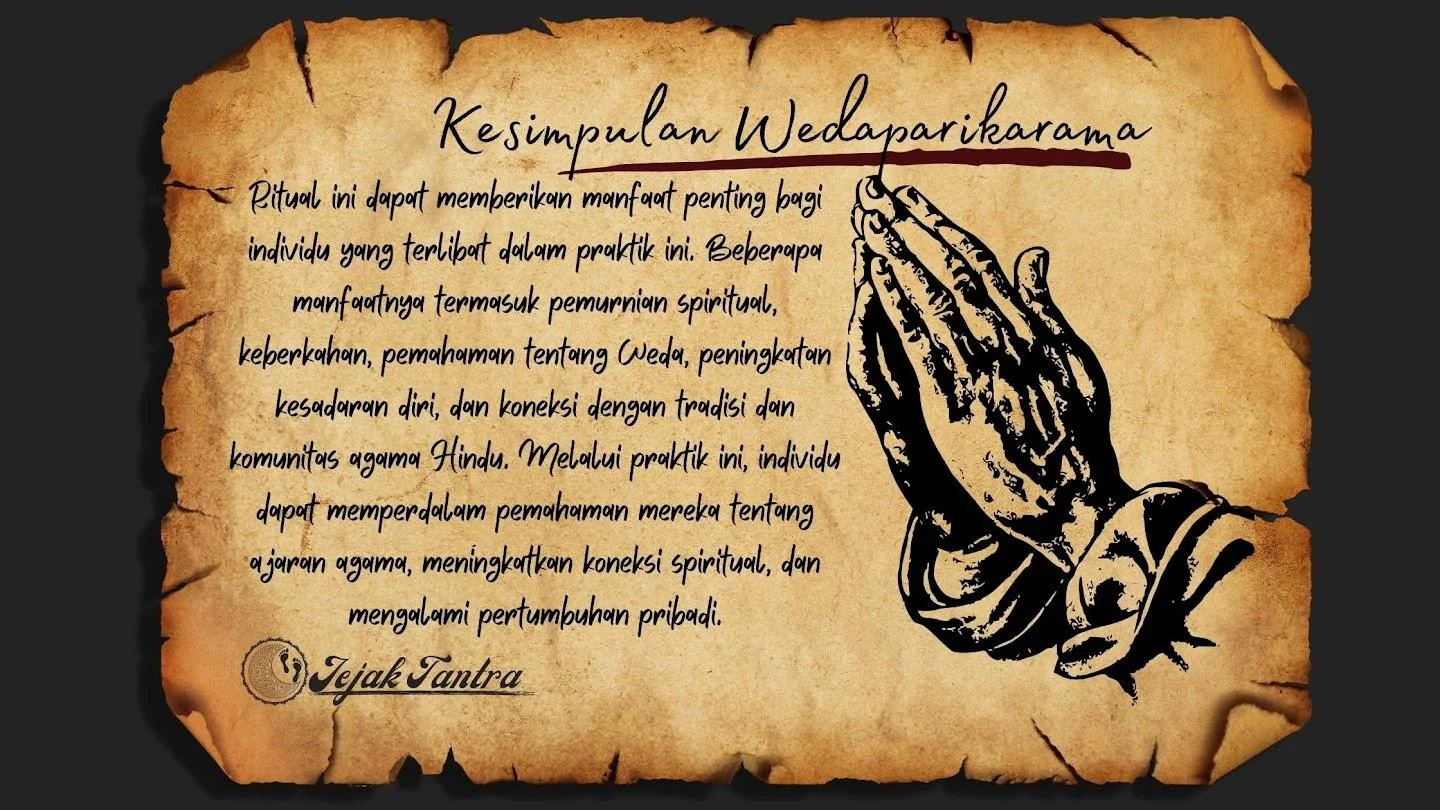 Kesimpulan Wedaparikarama
Ritual ini dapat memberikan manfaat penting bagi
individu yang terlibat dalam praktik ini. Beberapa
manfaatnya termasuk pemurnian spiritual,
keberkahan, pemahaman tentang Weda, peningkatan
kesadaran diri, dan koneksi dengan tradisi dan
komunitas agama Hindu. Melalui praktik ini, individu
dapat memperdalam pemahaman mereka tentang
ajaran agama, meningkatkan koneksi spiritual, dan
mengalami pertumbuhan pribadi.
Jejak Tantra